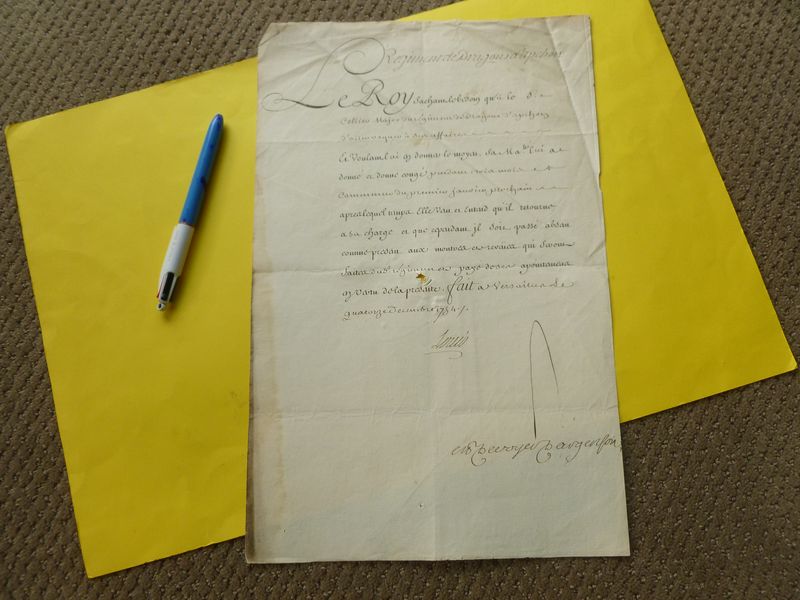 Regiment de Dragons d'apchon
Le Roy Sachant le besoin qu'a le S.r
Major du regiment de Dragons d'apchon
d'aller vaquer a ses affaires
Et Voulant lui en donner le moyen. Sa Ma.té lui a
donné et donne congé pendant trois mois
Commencer du premier janvier prochain
apres lequel temps Elle Veut et Entend qu'il retourne
a sa charge et que cependant il soit passé absent
comme present aux montres et reveues qui seront
faites dud. regiment et payé de ses apointemens
en vertu de la presente. fait a Versailles Le
quatorze decembre 1754./.
Louis
de Voyer D'argenson